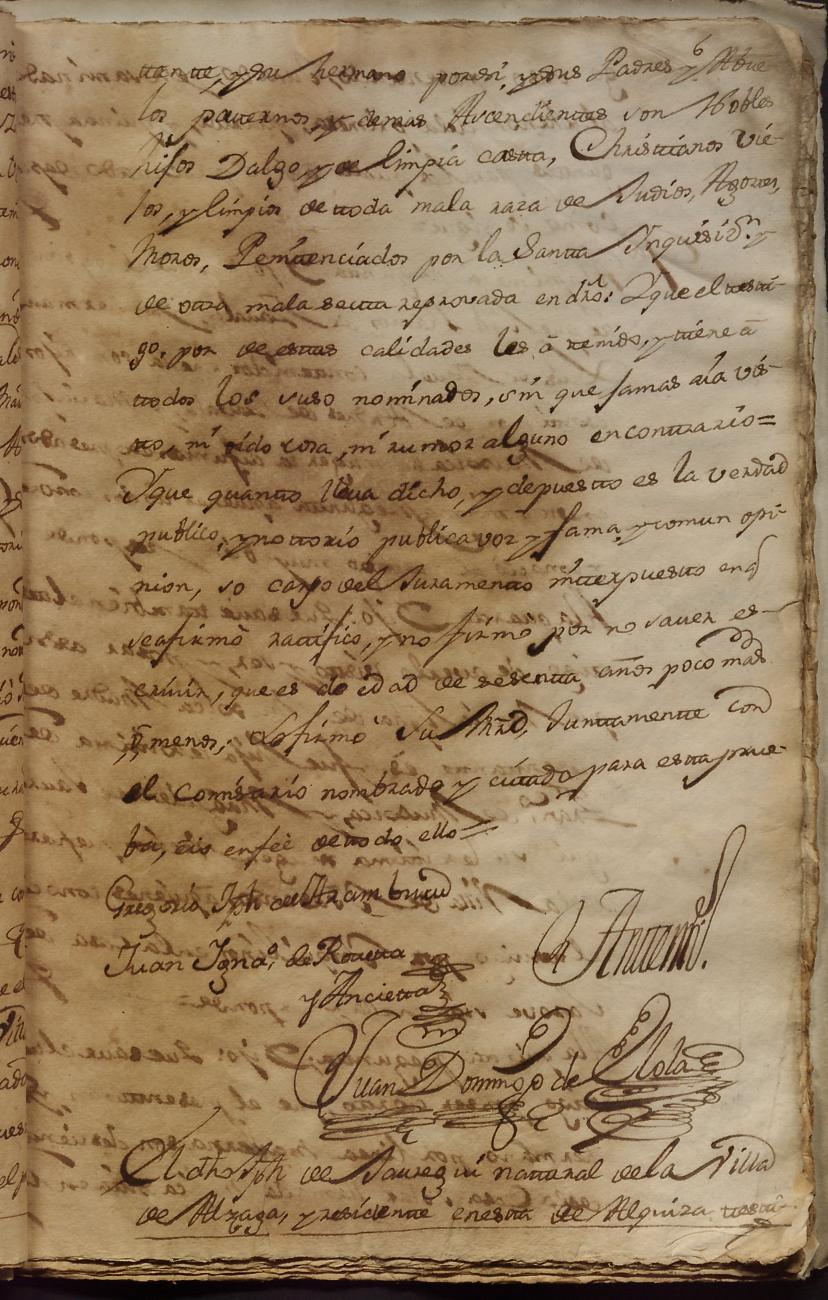 ttante, y su hermano por si, y sus Padres y Abue-
los paternos, y demas Ascendientes son Nobles
hijos Dalgo, y de limpia casta, Christianos Vie-
jos, y limpios de toda mala raza de Judios, Agotes,
Moros, Penitenciados por la Santa Inquisiz.n y
de otra mala secta reprovada en dro: Y que el testi-
go, por de estas calidades les â tenido, y tiene â
todos los suso nominados, sin que jamas aia vis-
to, ni oido cosa, ni rumor alguno en contrario=
Y que quanto lleva dicho, y depuesto es la verdad
publico, y notorio publica voz y fama, y comun opi-
nion, so cargo del Juramento interpuesto en q
se afirmò ratifico, y no firmo por no saver es-
crivir, que es de edad de sesenta años poco mas
ò menos, Lo firmò Su Mrzd, Juntamente con
el Comisario nombrado y citado para esta prue-
ba, è io en feè de todo ello=
Gregorio Jph de Aramburu
Juan Igna.o de Roueta
y Ancieta
Ante mi
Juan Domingo de Elola
El dho Jph de Jauregui natural de la Villa
de Alzaga, y residente en esta de Alquiza testi-